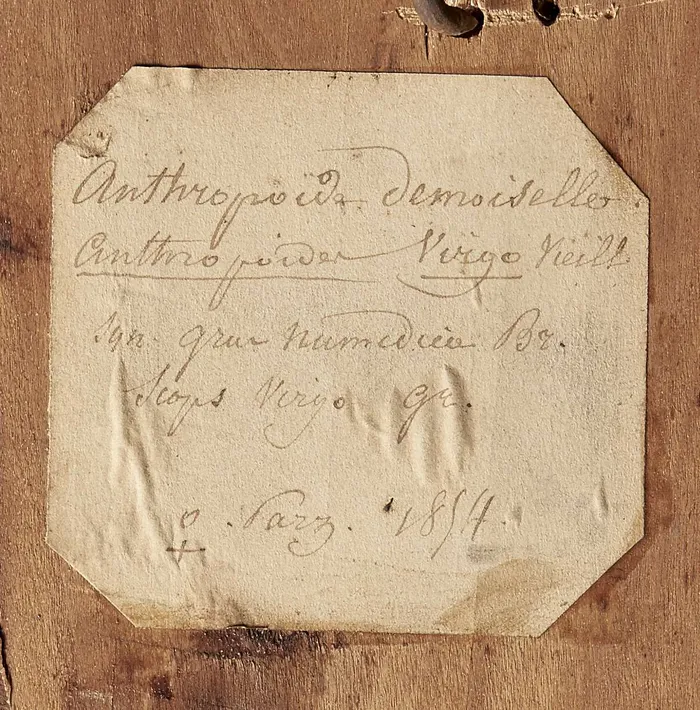 Anthropoïde demoiselle.
Anthropoides Virgo Vieill
Syn. grus numidica Br.
Scops Virgo gr.
♀. 1854.